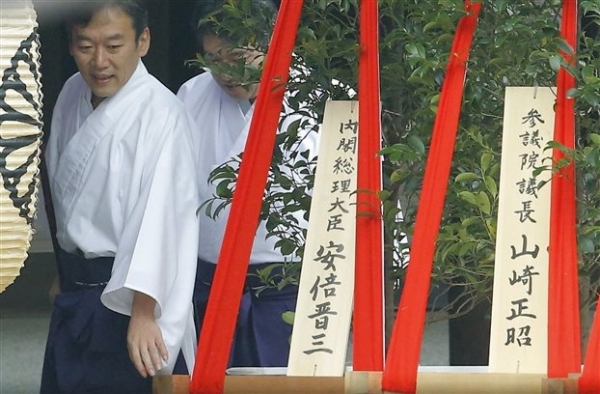 参院議長 山崎正昭
内閣総理大臣 安倍晋三